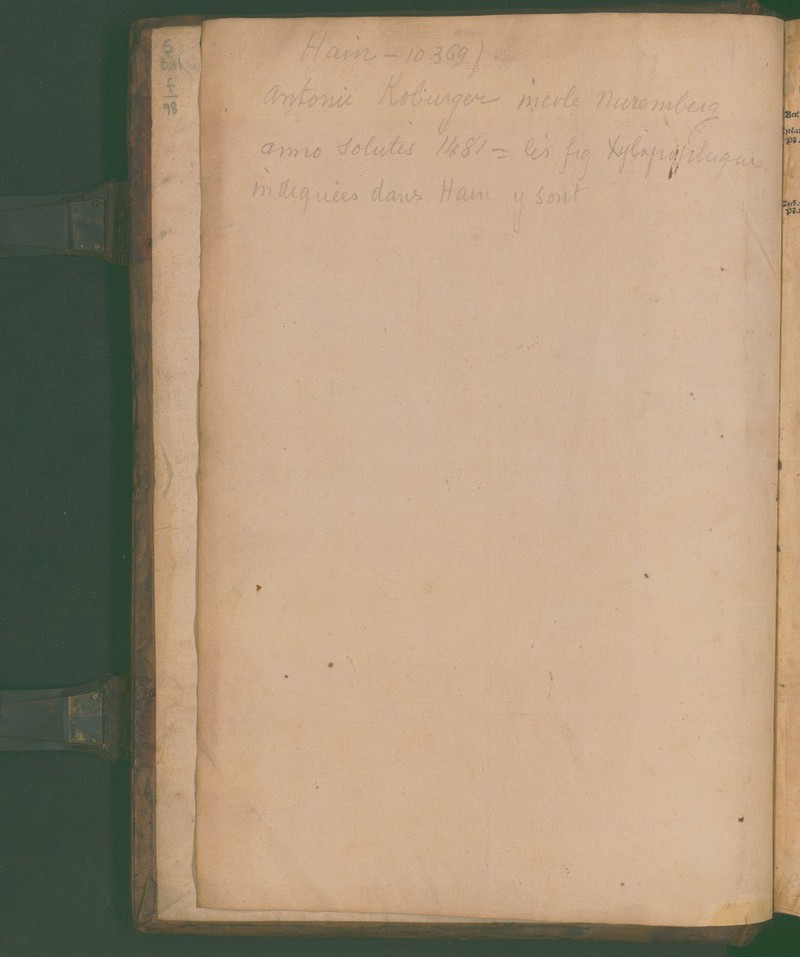 Hain - 10369)
Antonii Koburger incole Nuremberg
anno Salutis 1481 = les fig Xylographiques
indiquées dans Hain y sont